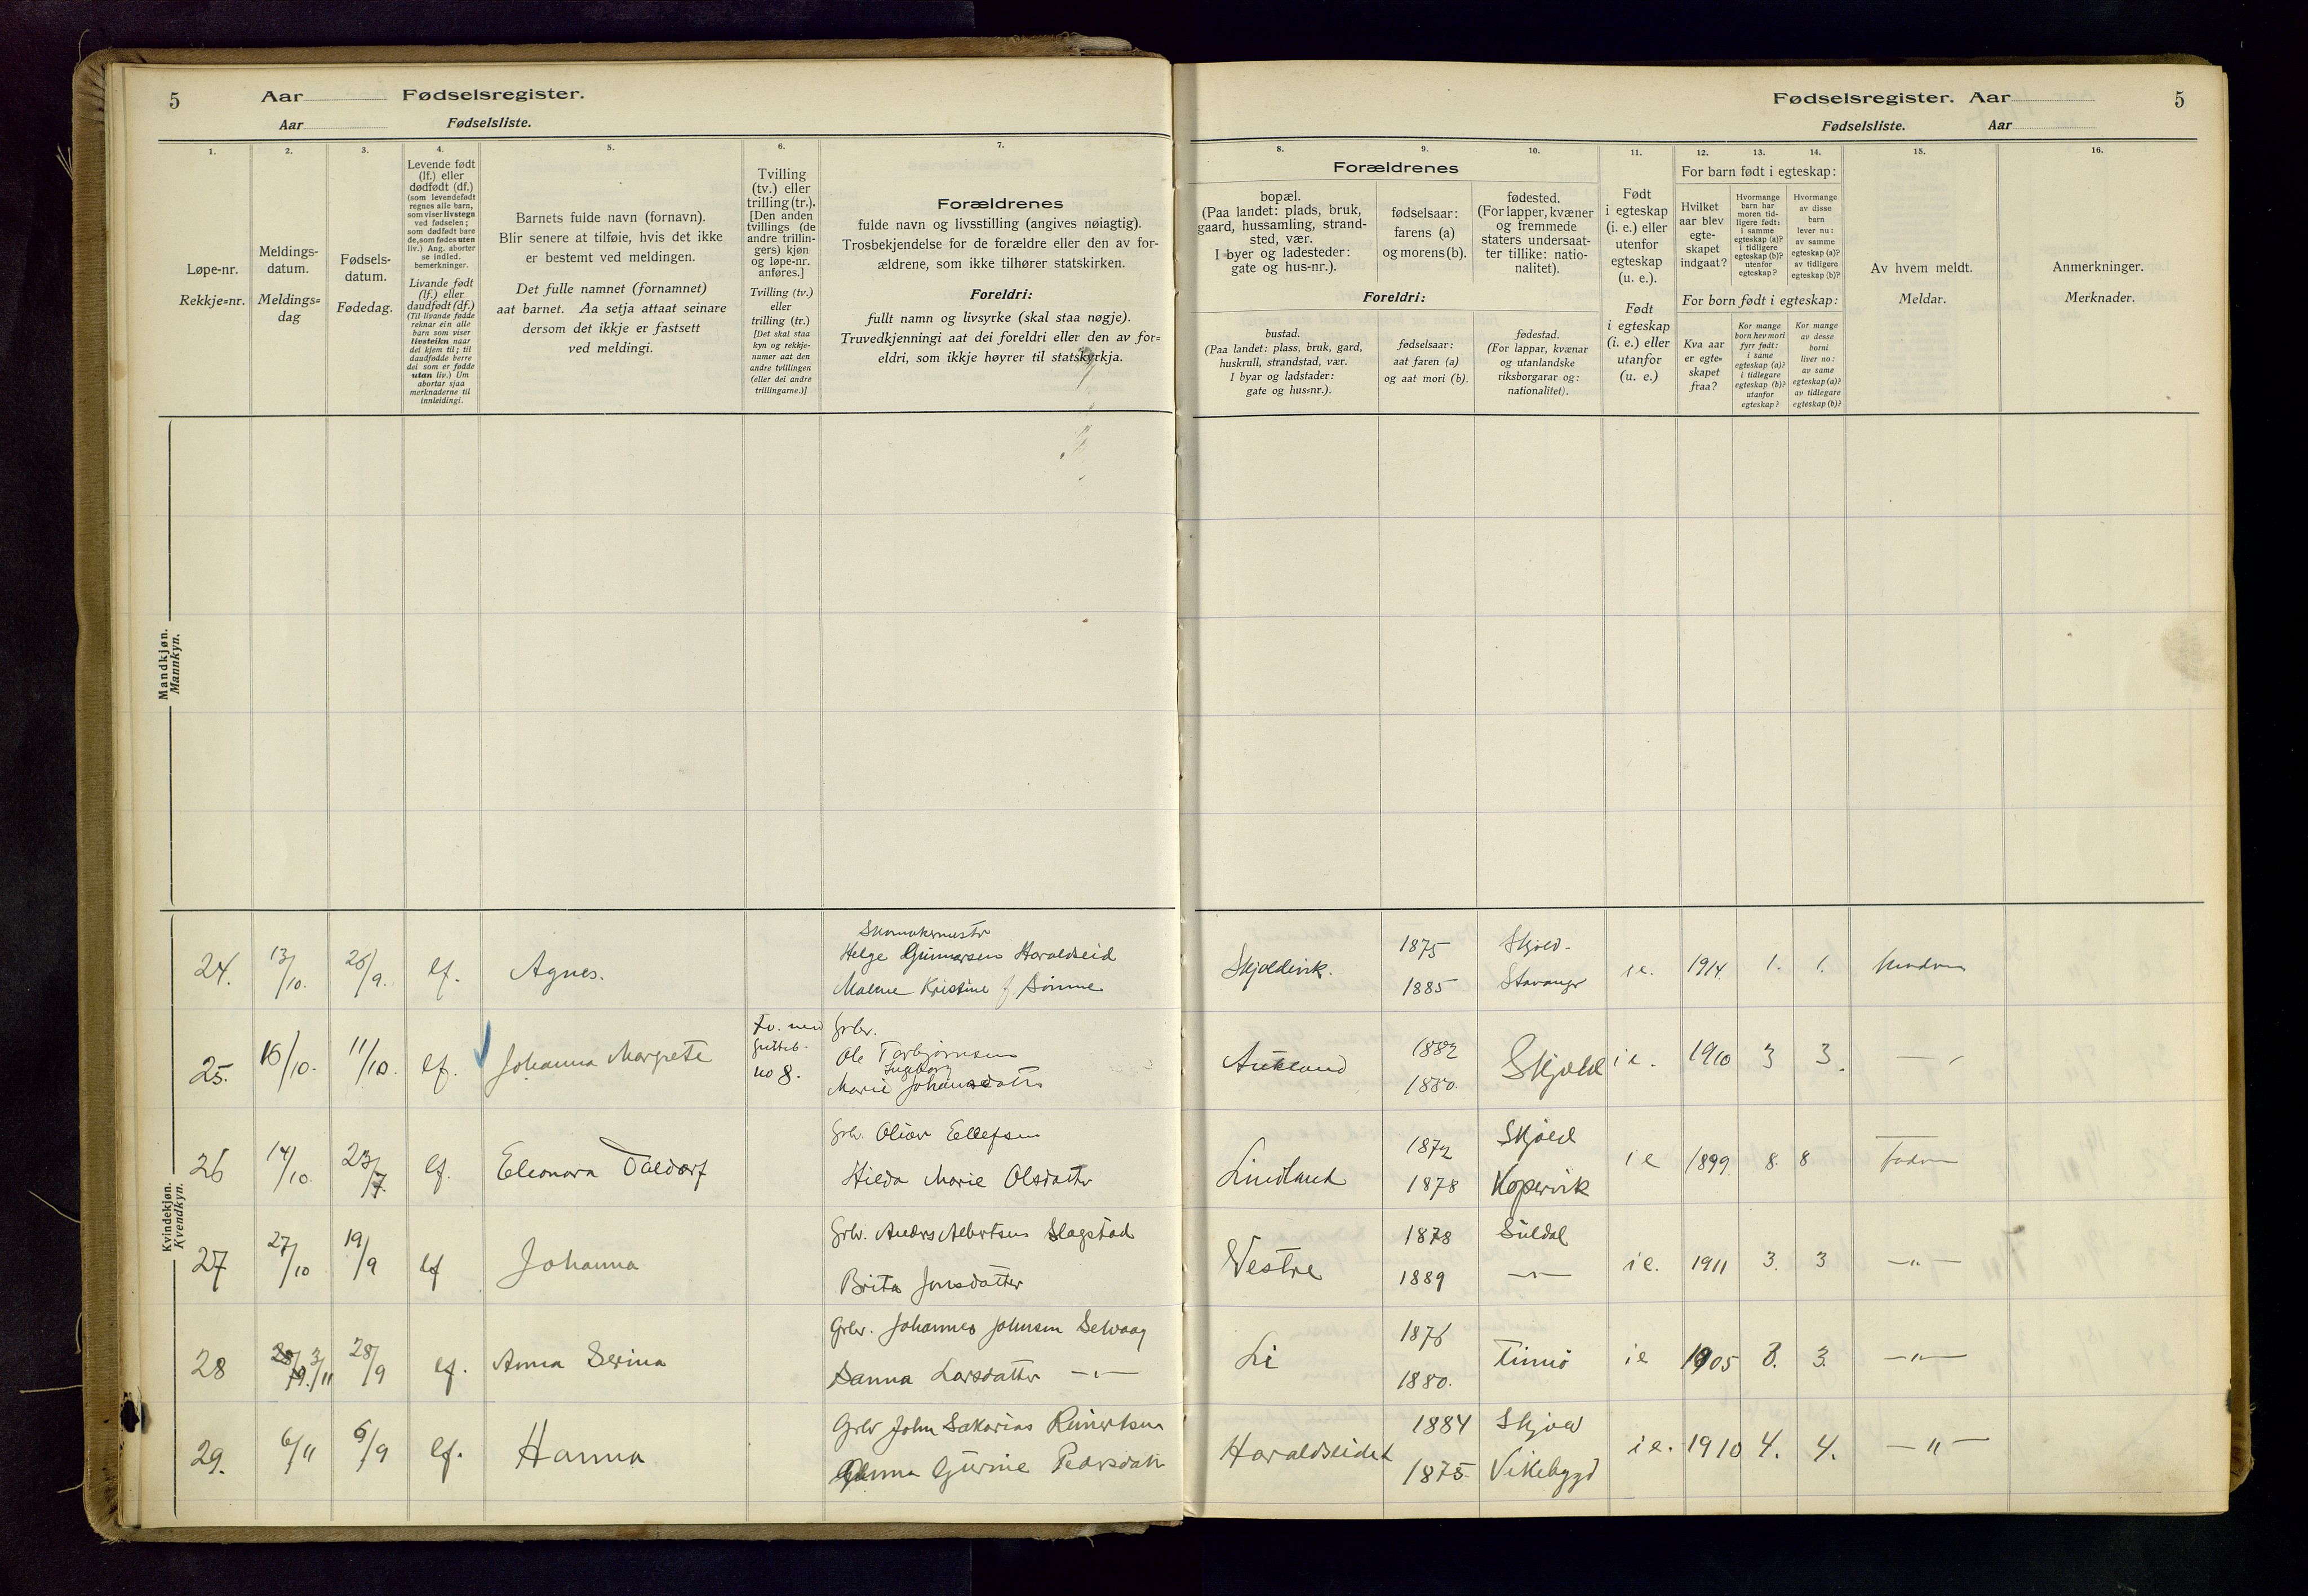 5 Aar Fødselsregister.
Aar Fødselsliste.
Fødselsregister. Aar 5
Fødselsliste. Aar
1.
Løpe-nr.
Rekkje=nr.
2.
Meldings-
datum.
Meldings=
dag
3.
Fødsels-
datum.
Fødedag.
4.
Levende født
(lf.) eller
dødfødt (df.)
(som levendefødt
regnes alle barn,
som viser livstegn
ved fødselen;
som dødfødt bare
de, som fødes uten
liv.) Ang. aborter
se indled.
bemerkninger.
Livande født
(lf.) eller
daudfødt (df.)
(Til livande fødde
reknar ein alle
barn som viser
livsteikn naar
dei kjem til; til
daudfødde berre
dei som er fødde
utan liv.) Um
abortar sjaa
merknaderne til
innleidingi.
5.
Barnets fulde navn (fornavn).
Blir senere at tilføie, hvis det ikke
er bestemt ved meldingen.
Det fulle namnet (fornamnet)
aat barnet. Aa setja attaat seinare
dersom det ikkje er fastsett
ved meldingi.
6.
Tvilling
(tv.) eller
trilling (tr.).
[Den anden
tvillings (de
andre trillin-
gers) kjøn
og løpe-nr.
anføres.]
Tvilling (tv.)
eller
trilling (tr.)
[Det skal staa
kyn og rekkje-
numer aat den
andre tvillingen
(eller dei andre
trillingarne.)]
7.
Forældrenes
fulde navn og livsstilling (angives nøiagtig).
Trosbekjendelse for de forældre eller den av for-
ældrene, som ikke tilhører statskirken.
Foreldri:
fullt namn og livsyrke (skal staa nøgje).
Truvedkjenningi aat dei foreldri eller den av for=
eldri, som ikkje høyrer til statskyrkja.
8. 9. 10.
Forældrenes
bopæl.
(Paa landet: plads, bruk,
gaard, hussamling, strand-
sted, vær.
I byer og ladesteder:
gate og hus-nr.).
fødselsaar:
farens (a)
og morens (b).
fødested.
(For lapper, kvæner
og fremmede
staters undersaat-
ter tillike: natio-
nalitet).
Foreldri:
bustad.
(Paa landet: plass, bruk, gard,
huskrull, strandstad, vær.
I byar og ladstader:
gate og hus=nr.).
fødselsaar:
aat faren (a)
og aat mori (b).
fødestad.
(For lappar, kvænar
og utanlandske
riksborgarar og:
nationalitet).
11.
Født
i egteskap
(i. e.) eller
utenfor
egteskap
(u. e.).
Født
i egteskap
(i. e.) eller
utanfor
(u. e.)
12. 13. 14.
For barn født i egteskap:
Hvilket
aar blev
egte-
skapet
indgaat?
Hvormange
barn har
moren tid-
ligere født:
i samme
egteskap (a)?
i tidligere
egteskap (b)?
utenfor
egteskap?
Hvormange
av disse
barn
lever nu:
av samme
egteskap (a)?
av tidligere
egteskap (b)?
For born født i egteskap:
Kva aar
er egte=
skapet
fraa?
Kor mange
born hev mori
fyrr født:
i same
egteskap (a)?
i tidlegare
egteskap (b)?
utanfor
egteskap?
Kor mange
av desse
borni
liver no:
av same
egteskap (a)?
av tidlegare
egteskap (b)?
15.
Av hvem meldt.
Meldar.
16.
Anmerkninger.
Merknader.
Mandkjøn.
Mannkyn.
Kvindekjøn.
Kvendkyn.
24. 13/10. 26/9. lf. Agnes.
Helge Gunnarsen Haraldseid
Malene Kristine f Sømme
Skjoldevik. 1875 Skjold.
1885 Stavanger
i e. 1914 1. 1.
25. 16/10. 11/10. lf. Johanna Margrete
Tv. med
no 8.
Grbr.
Ole Torbjørnsen
Ingeborg
Marie Johansdatter
1882
1880.
Skjold i e. 1910 3 3.
26 14/10. 23/7. lf. Eleonora Valdorf
Grbr. Oliver Ellefsen
Hilda Marie Olsdatter
Lindland 1872 Skjold
1878 Kopervik
i e 1899. 8. 8 Faderen
27 27/10 19/9 lf Johanna
Grbr. Anders Albertsen Slagstad
Brita Jonsdatter
Vestre 1878 Suldal
1889 —"—
i e. 1911 3. 3 —"—
28 3/11 28/9 lf. Anna Serina
Grbr. Johannes Johnsen Selvaag
Sanna Larsdatter —"—
Li 1876
1880.
i e 1905 3. 3. —"—
29. 6/11 9/9 lf. Hanna
Grbr John Sakarias Reinertsen
Gurine Pedersdatter
Haraldseidet 1884 Skjold
1875. Vikebygd
i e. 1910 4. 4. —"—